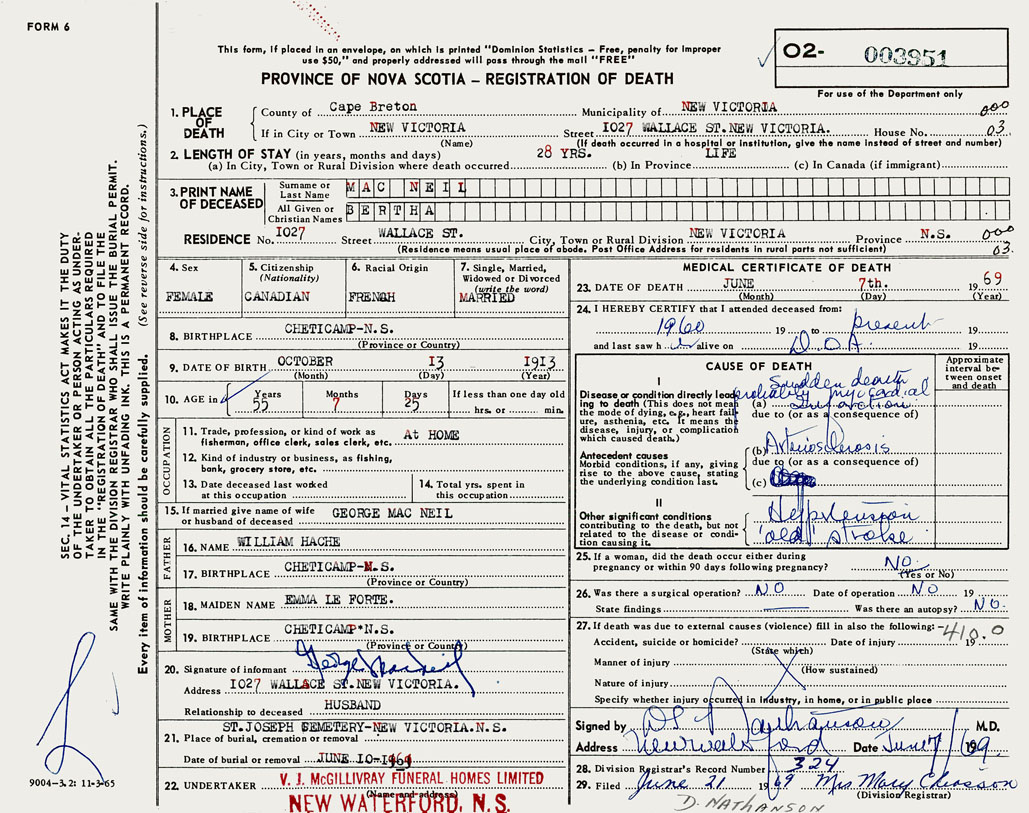 FORM 6
This form, if placed in an envelope, on which is printed "Dominion Statistics – Free, penalty for improper
use $50," and properly addressed will pass through the mail "FREE"
PROVINCE OF NOVA SCOTIA – REGISTRATION OF DEATH
02- 003951
For use of the Department only
1. PLACE OF DEATH
County of Cape Breton Municipality of NEW VICTORIA 000
If in City or Town NEW VICTORIA Street 1027 WALLACE ST.NEW VICTORIA. House No. 03.
(Name) (If death occurred in a hospital or institution, give the name instead of street and number)
2. LENGTH OF STAY (in years, months and days) 28 YRS. LIFE
(a) In City, Town or Rural Division where death occurred (b) In Province (c) In Canada (if immigrant)
3. PRINT NAME OF DECEASED
Surname or Last Name MAC NEIL
All Given or Christian Names BERTHA
RESIDENCE No. 1027 Street WALLACE ST. City, Town or Rural Division NEW VICTORIA Province N.S. 000
(Residence means usual place of abode. Post Office Address for residents in rural parts not sufficient) 03.
4. Sex
FEMALE
5. Citizenship
(Nationality)
CANADIAN
6. Racial Origin
FRENCH
7. Single, Married,
Widowed or Divorced
(write the word)
MARRIED
8. BIRTHPLACE CHETICAMP-N.S.
(Province or Country)
9. DATE OF BIRTH OCTOBER 13 1913
(Month) (Day) (Year)
10. AGE in Years Months Days If less than one day old
55 7 25 hrs. or min.
OCCUPATION
11. Trade, profession, or kind of work as
fisherman, office clerk, sales clerk, etc. At HOME
12. Kind of industry or business, as fishing,
bank, grocery store, etc.
13. Date deceased last worked
at this occupation
14. Total yrs. spent in
this occupation
15. If married give name of wife
or husband of deceased GEORGE MAC NEIL
FATHER
16. NAME WILLIAM HACHE
17. BIRTHPLACE CHETICAMP-N.S.
(Province or Country)
MOTHER
18. MAIDEN NAME EMMA LE FORTE.
19. BIRTHPLACE CHETICAMP*N.S.
(Province or Country)
20. Signature of informant George MacNeil
Address 1027 WALLACE ST.NEW VICTORIA.
Relationship to deceased HUSBAND
ST.JOSEPH CEMETERY-NEW VICTORIA.N.S.
21. Place of burial, cremation or removal
Date of burial or removal JUNE 10-1969
22. UNDERTAKER V. J. McGILLIVRAY FUNERAL HOMES LIMITED
(Name and address)
NEW WATERFORD, N.S.
MEDICAL CERTIFICATE OF DEATH
23. DATE OF DEATH JUNE 7th. 1969
(Month) (Day) (Year)
24. I HEREBY CERTIFY that I attended deceased from:
1960 19 to present 19
and last saw h alive on D.O.A. 19
CAUSE OF DEATH
Approximate
interval be-
tween onset
and death
I
Disease or condition directly lead-
ing to death (This does not mean
the mode of dying, e.g., heart fail-
ure, asthenia, etc. It means the
disease, injury, or complication
which caused death.)
Sudden death
probably myocardial
(a) Infarction
due to (or as a consequence of)
Antecedent causes
Morbid conditions, if any, giving
rise to the above cause, stating
the underlying condition last.
(b) Arteriosclerosis
due to (or as a consequence of)
(c)
II
Other significant conditions
contributing to the death, but not
related to the disease or condi-
tion causing it.
Hypertension
'old' stroke
25. If a woman, did the death occur either during
pregnancy or within 90 days following pregnancy? NO
(Yes or No)
26. Was there a surgical operation? NO Date of operation NO 19
State findings Was there an autopsy? NO.
27. If death was due to external causes (violence) fill in also the following: 410.0
Accident, suicide or homicide? Date of injury 19
(State which)
Manner of injury
(How sustained)
Nature of injury
Specify whether injury occurred in industry, in home, or in public place
Signed by Nathanson M.D.
Address New Waterford Date June 7/ 1969.
28. Division Registrar's Record Number 324
29. Filed June 21 1969 Mrs Mary Chiasson
(Division Registrar)
D. NATHANSON
SEC. 14 – VITAL STATISTICS ACT MAKES IT THE DUTY
OF THE UNDERTAKER OR PERSON ACTING AS UNDER-
TAKER TO OBTAIN ALL THE PARTICULARS REQUIRED
IN THE "REGISTRATION OF DEATH" AND TO FILE THE
SAME WITH THE DIVISION REGISTRAR WHO SHALL ISSUE THE BURIAL PERMIT.
WRITE PLAINLY WITH UNFADING INK. THIS IS A PERMANENT RECORD.
Every item of information should be carefully supplied. (See reverse side for instructions.)
9004-3.2: 11-3-65